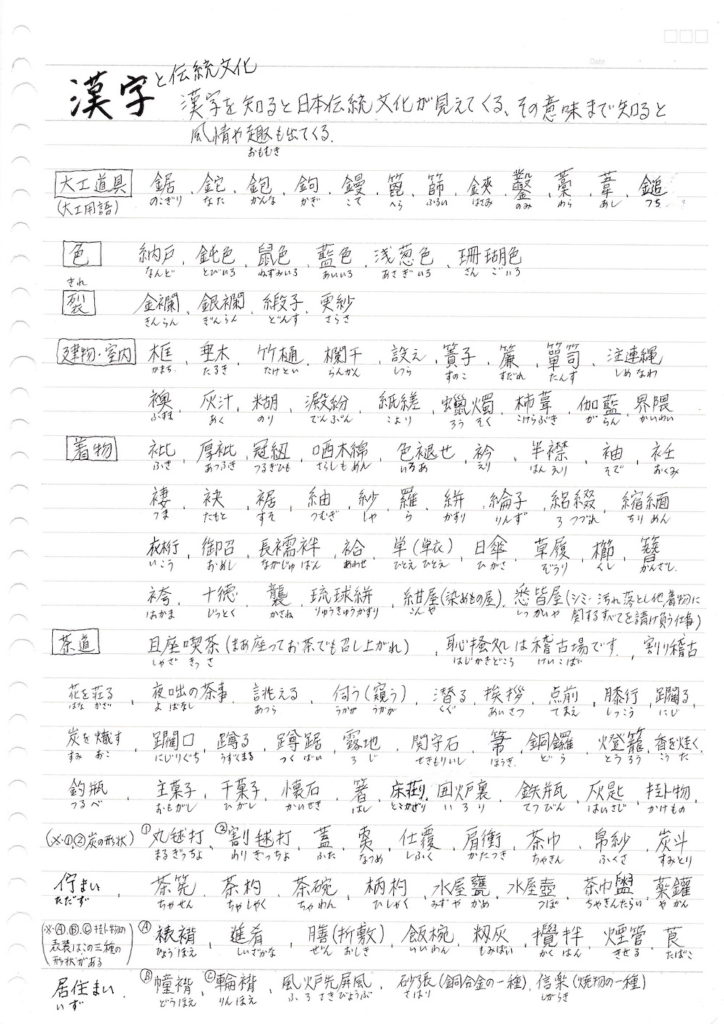 漢字と伝統文化
漢字を知ると日本伝統文化が見えてくる、その意味まで知ると
風情や趣も出てくる。
おもむき
大工道具 鋸、鉈、鉋、鉤、鏝、箆、篩、鋏、鑿、藁、葦、鎚
(大工用語) のこぎり なた かんな かぎ こて へら ふるい はさみ のみ わら あし つち
色 納戸、鈍色、鼠色、藍色、浅葱色、珊瑚色
なんど とびいろ ねずみいろ あいいろ あさぎいろ さんごいろ
きれ
裂 金襴、銀襴、緞子、更紗
きんらん ぎんらん どんす さらさ
建物・室内 框、垂木、竹樋、欄干、設え、簀子、簾、箪笥、注連縄
かまち たるき たけとい らんかん しつら すのこ すだれ たんす しめなわ
襖、灰汁、糊、澱粉、紙縒、蠟燭、杮葺、伽藍、界隈
ふすま あく のり でんぷん こより ろうそく こけらぶき がらん かいわい
着物 衼、厚衼、冠紐、晒木綿、色褪せ、衿、半襟、袖、衽
ふき あつふき つるぎひも さらしもめん いろあ えり はんえり そで おくみ
褄、袂、裾、紬、紗、羅、絣、綸子、絽綴、縮緬
つま たもと すそ つむぎ しゃ ら かすり りんず ろつづれ ちりめん
衣桁、御召、長襦袢、袷、単(単衣)、日傘、草履、櫛、簪
いこう おめし ながじゅばん あわせ ひとえ ひとえ ひがさ ぞうり くし かんざし
袴、十徳、襲、琉球絣、紺屋(染めもの屋)、悉皆屋(シミ・汚れ落とし他着物に
はかま じっとく かさね りゅうきゅうかすり こんや しっかいや 関するすべてを請け負う仕事)
茶道 且座喫茶(まあ座ってお茶でも召し上がれ)、恥掻処は稽古場です、割り稽古
しゃざきっさ はじかきどころ けいこば
花を荘る、夜咄の茶事、誂える、伺う(窺う)、潜る、挨拶、点前、膝行、躙る
はな かざ よばなし あつら うかが うかが くぐ あいさつ てまえ しっこう にじ
炭を熾す、躙口、蹲る、蹲踞、露地、関守石、箒、銅鑼、燈籠、香を炷く
すみ おこ にじりぐち うずくまる つくばい ろじ せきもりいし ほうき どう とうろう こう た
釣瓶、主菓子、干菓子、懐石、箸、床荘り、囲炉裏、鉄瓶、灰匙、掛け物
つるべ おもがし ひがし かいせき はし とこかざり いろり てつびん はいさじ かけもの
(※①②炭の形状) ①丸毬打、②割毬打、蓋、棗、仕覆、肩衝、茶巾、帛紗、炭斗
まるぎっちょ わりぎっちょ ふた なつめ しふく かたつき ちゃきん ふくさ すみとり
佇まい、茶筅、茶杓、茶碗、柄杓、水屋甕、水屋壺、茶巾盥、薬鑵
ただずま ちゃせん ちゃしゃく ちゃわん ひしゃく みずやかめ つぼ ちゃきんたらい やかん
(※Ⓐ Ⓑ Ⓒ 掛け物の Ⓐ裱褙、進肴、膳(折敷)、飯椀、籾灰、攪拌、煙管、莨
表装はこの三種の ひょうほえ しいざかな ぜん おしき いいわん もみばい かくはん きせる たばこ
形状がある)
居住まい、Ⓑ幢褙、Ⓒ輪褙、風炉先屏風、砂張(銅合金の一種)、信楽(焼物の一種)
いず どうほえ りんほえ ふろさきびょうぶ さはり しがらき